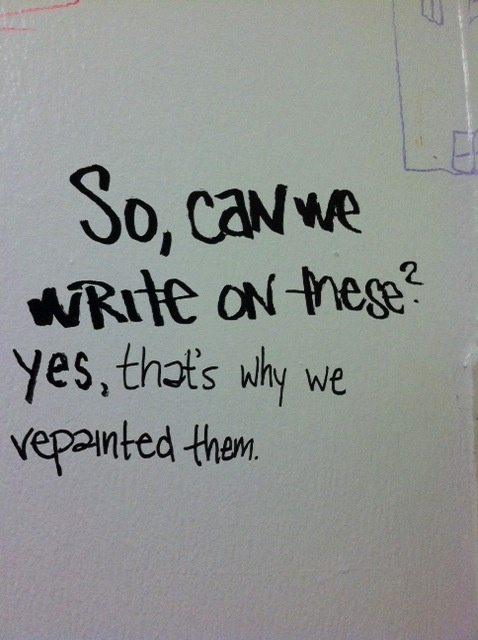 So, can we
write on these?
yes, that's why we
repainted them.